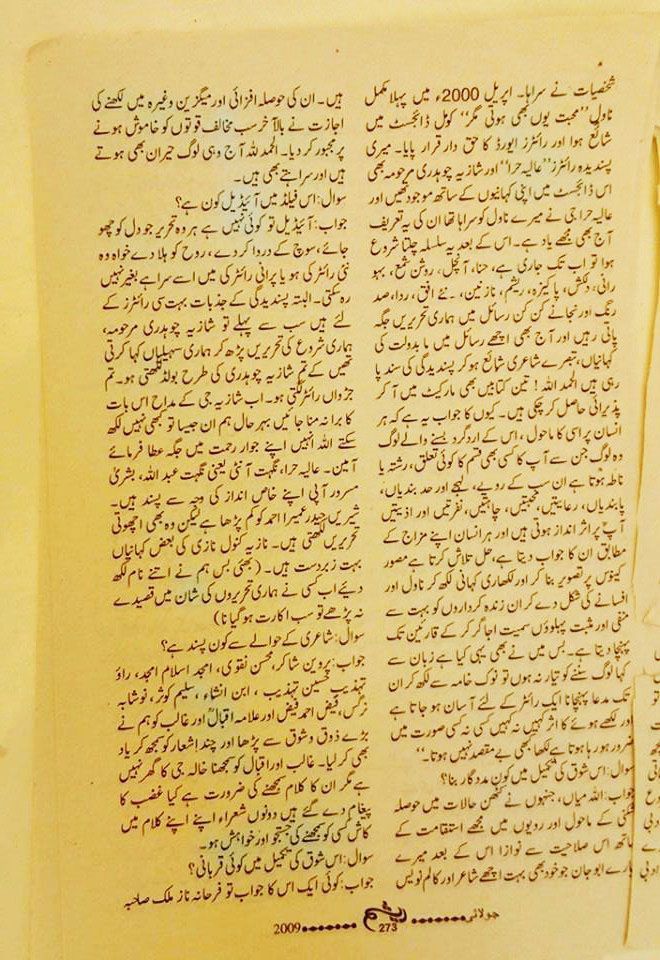 شخصیات نے سراہا۔ اپریل 2000ء میں پہلا مکمل
ناول ”محبت یوں بھی ہوتی مگر“ کومل ڈائجسٹ میں
شائع ہوا اور رائٹرز ایورڈ کا حق دار قرار پایا۔ میری
پسندیدہ رائٹرز ”عالیہ حرا“ اور شازیہ چوہدری مرحومہ بھی
اس ڈائجسٹ میں اپنی کہانیوں کے ساتھ موجود تھیں اور
عالیہ حرا جی نے میرے ناول کو سراہا تھا ان کی یہ تعریف
آج بھی مجھے یاد ہے۔ اس کے بعد یہ سلسلہ چلنا شروع
ہوا تو اب تک جاری ہے، حنا، آنچل، روشن شمع، بہو
رانی، دلکش، پاکیزہ، ریشم، نازنین، نئے افق، ردا، صد
رنگ اور نجانے کن کن رسائل میں ہماری تحریریں جگہ
پاتی رہیں اور آج بھی اچھے رسائل میں ما بدولت کی
کہانیاں، تبصرے شاعری شائع ہو کر پسندیدگی کی سند پا
رہی ہیں الحمد اللہ! تین کتابیں بھی مارکیٹ میں آ کر
پذیرائی حاصل کر چکی ہیں۔ کیوں کا جواب یہ ہے کہ ہر
انسان پر اس کا ماحول، اس کے اردگرد بسنے والے لوگ
وہ لوگ جن سے آپ کا کسی بھی قسم کا کوئی تعلق، رشتہ یا
ناطہ ہوتا ہے ان سب کے رویے، لہجے اور حد بندیاں،
پابندیاں، رعایتیں، محبتیں، چاہتیں، نفرتیں اور اذیتیں
آپ پر اثر انداز ہوتی ہیں اور ہر انسان اپنے مزاج کے
مطابق ان کا جواب دیتا ہے، حل تلاش کرتا ہے مصور
کینوس پر تصویر بنا کر اور لکھاری کہانی لکھ کر ناول اور
افسانے کی شکل دے کر ان زندہ کرداروں کو بہت سے
منفی اور مثبت پہلوؤں سمیت اجاگر کر کے قارئین تک
پہنچا دیتا ہے۔ بس میں نے بھی یہی کیا ہے زبان سے
کہا لوگ سننے کو تیار نہ ہوں تو نوک خامہ سے لکھ کر ان
تک مدعا پہنچانا ایک رائٹر کے لئے آسان ہو جاتا ہے
اور لکھے ہوئے کا اثر کہیں نہ کہیں کسی نہ کسی صورت میں
ضرور ہو رہا ہوتا ہے لکھا بھی بے مقصد نہیں ہوتا۔“
سوال: اس شوق کی تکمیل میں کون مددگار بنا؟
جواب: اللہ میاں، جنہوں نے کٹھن حالات میں حوصلہ
شکنی کے ماحول اور رویوں میں مجھے استقامت کے
ساتھ اس صلاحیت سے نوازا اس کے بعد میرے
پیارے ابو جان جو خود بھی بہت اچھے شاعر اور کالم نویس
ہیں۔ ان کی حوصلہ افزائی اور میگزین وغیرہ میں لکھنے کی
اجازت نے بالآخر سب مخالف قوتوں کو خاموش ہونے
پر مجبور کر دیا۔ الحمد للہ آج وہی لوگ حیران بھی ہوتے
ہیں اور سراہتے بھی ہیں۔
سوال: اس فیلڈ میں آئیڈیل کون ہے؟
جواب: آئیڈیل تو کوئی نہیں ہے ہر وہ تحریر جو دل کو چھو
جائے، سوچ کے در وا کر دے، روح کو ہلا دے خواہ وہ
نئی رائٹر کی ہو یا پرانی رائٹر کی میں اسے سراہے بغیر نہیں
رہ سکتی۔ البتہ پسندیدگی کے جذبات بہت سی رائٹرز کے
لئے ہیں سب سے پہلے تو شازیہ چوہدری مرحومہ،
ہماری شروع کی تحریریں پڑھ کر ہماری سہیلیاں کہا کرتی
تھیں کے تم شازیہ چوہدری کی طرح بولڈ لکھتی ہو۔ تم
جڑواں رائٹر لگتی ہو۔ اب شازیہ جی کے مداح اس بات
کا برا نہ منا جائیں بہر حال ہم ان جیسا تو کبھی نہیں لکھ
سکتے اللہ انہیں اپنے جوار رحمت میں جگہ عطا فرمائے
آمین۔ عالیہ حرا، نگہت آنٹی یعنی نگہت عبد اللہ، بشریٰ
مسرور آپی اپنے خاص انداز کی وجہ سے پسند ہیں۔
شیریں حیدر عمیرا احمد کو کم پڑھا ہے لیکن وہ بھی اچھوتی
تحریریں لکھتی ہیں۔ نازیہ کنول نازی کی بعض کہانیاں
بہت زبردست ہیں۔ (بھئی بس ہم نے اتنے نام لکھ
دیئے اب کسی نے ہماری تحریروں کی شان میں قصیدے
نہ پڑھے تو سب اکارت ہو گیا نا)
سوال: شاعری کے حوالے سے کون پسند ہے؟
جواب: پروین شاکر، محسن نقوی، امجد اسلام امجد، راؤ
تہذیب حسین تہذیب، ابن انشاء، سلیم کوثر، نوشابہ
نرگس، فیض احمد فیض اور علامہ اقبالؒ اور غالب کو ہم نے
بڑے ذوق و شوق سے پڑھا اور چند اشعار کو سمجھ کر یاد
بھی کر لیا۔ غالب اور اقبال کو سمجھنا خالہ جی کا گھر نہیں
ہے مگر ان کا کلام سمجھنے کی ضرورت ہے کیا غضب کا
پیغام دے گئے ہیں دونوں شعراء اپنے اپنے کلام میں
کاش کسی کو سمجھنے کی جستجو اور خواہش ہو۔
سوال: اس شوق کی تکمیل میں کوئی قربانی؟
جواب: کوئی ایک اس کا جواب تو فرحانہ ناز ملک صاحبہ
جولائی ریشم 273 2009